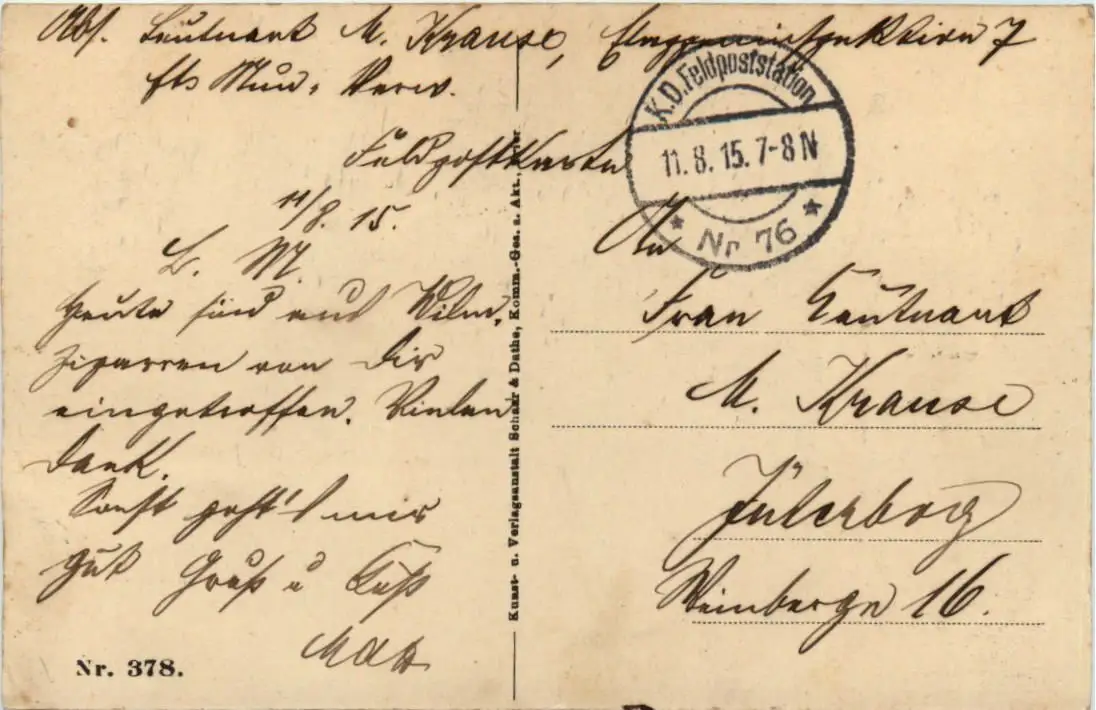 Abs. Leutnant M. Krause, Etappeninspektion 7
Mun. Verw.
Feldpostkarte
11/8. 15.
L. M.
Heute sind auch
Zigarren von Dir
eingetroffen. Vielen
Dank.
Sonst geht's mir
gut Gruß u Kuß
Max
Nr. 378.
Kunst- u. Verlagsanstalt Schaar & Dathe, Komm.-Ges. a. Akt., Trier
K.D.Feldpoststation
11.8.15.7-8N
* Nr 76 *
An
Frau Leutnant
M. Krause
Jüterbog
Weinberge 16.